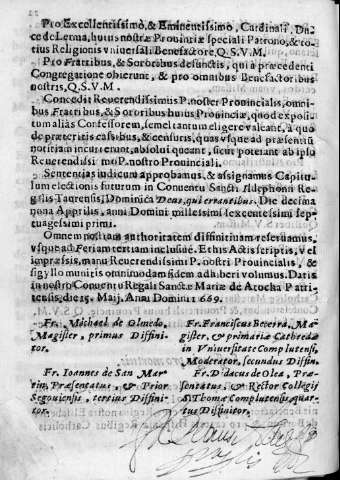 Pro Excellentissimo, & Eminentissimo, Cardinali, Du-
ce de Lerma, huius nostræ Prouintiæ speciali Patrono, & to-
tius Religionis vniuersali Benefactore, Q.S.V.M.
Pro Fratribus, & Sororibus defunctis, qui a præcedenti
Congregatione obierunt, & pro omnibus Benefactoribus
nostris, Q.S.V.M.
Concedit Reuerendissimus P. noster Prouincialis, omni-
bus Fratribus, & Sororibus huius Prouinciæ, quod exposi-
tum aliàs Confessorem, semel tantum eligere valeant, à quo
de præteritis casibus, & censuris, quas vsque ad præsentis
notitiam incurrerunt, absolui queant, sicut poterant ab ipso
Reuerendissimo P. nostro Prouinciali.
Sententias iudicum approbamus, & assignamus Capitu-
lum electionis futurum in Conuentu Sancti Ildephonsi Re-
galis Taurensis, Dominica Deus, qui errantibus. Die decima
nona Apprilis, anni Domini millessimi sexcentessimi sep-
tuagessimi primi.
Omnem nostram authoritatem diffinitivam reseruamus,
vsque ad Feriam tertiam inclusiue. Et his Actis scriptis, vel
impræssis, manu Reuerendissimi P. nostri Prouincialis, &
sigyllo munitis omnimodam fidem adhiberi volumus. Datis
in nostro Conuentu Regali Sanctæ Mariæ de Atocha Patri-
tensis, die 15. Maij. Anni Domini 1669.
Fr. Michael de Olmedo,
Magister, primus Diffini-
tor.
Fr. Ioannes de San Mar-
tin, Præsentatus, & Prior
Segouiensis, tertius Diffini-
tor.
Fr. Franciscus Becerra, Ma-
gister, & primariæ Cathredæ
in Vniuersitate Complutensi,
Moderator, secundus Diffin.
Fr. Didacus de Olea, Præ-
sentatus, & Rector Collegij
S. Thomæ Complutensis, quar-
tus Diffinitor.